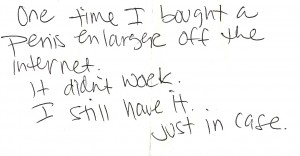 One time I bought a
Penis enlarger off the
Internet.
It didn't work.
I still have it..
just in case.